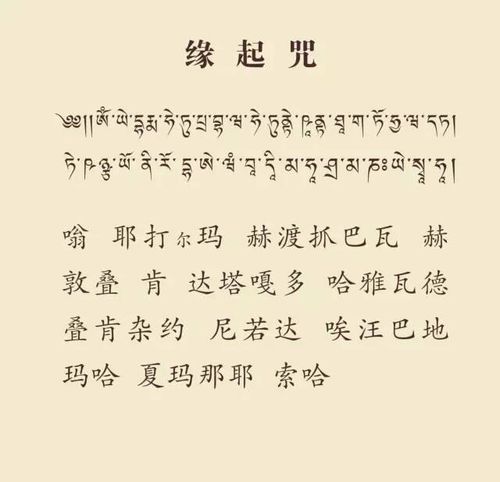 缘起咒
༄༅།།ཨོཾ་ཡེ་དྷརྨ་ཧེ་ཏུ་པྲ་བྷ་ཝ་ཧེ་ཏུནྟེ་ཥཱནྟ་ཐཱ་ག་ཏོ་ཧྱ་ཝ་དཏ།
嗡 耶打尔玛 赫渡抓巴瓦 赫
敦叠 肯 达塔嘎多 哈雅瓦德
叠肯杂约 尼若达 唉汪巴地
玛哈 夏玛那耶 索哈